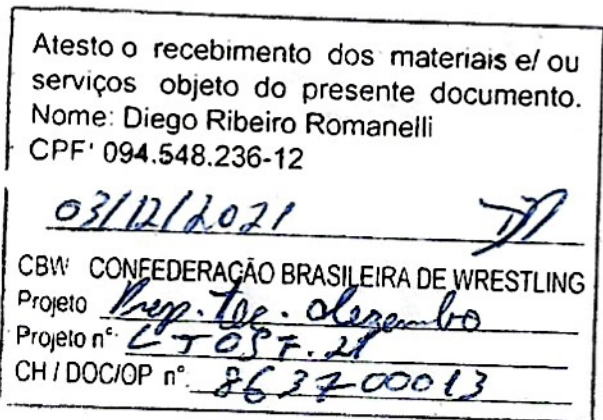 Atesto o recebimento dos materiais e/ ou
serviços objeto do presente documento.
Nome: Diego Ribeiro Romanelli
CPF' 094.548.236-12
03/12/2021
CBW CONFEEDERAÇÃO BRASILEIRA DE WRESTLING
Projeto Prep. tec. dezembo
Projeto n°.
CH / DOC/OP n°. 863700013